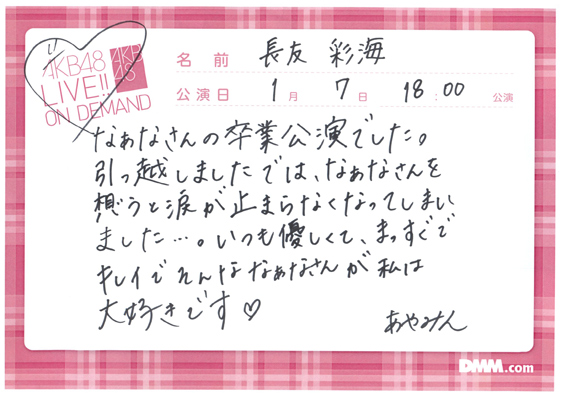 AKB48
LIVE!!
ON DEMAND
AKB
48
名前 長友 彩海
公演日 1月 7日 18:00 公演
なぁなさんの卒業公演でした。
引っ越しましたでは、なぁなさんを
想うと涙が止まらなくなってしまい
ました…。いつも優しくて、まっすぐで
キレイでそんななぁなさんが私は
大好きです♡
あやみん
DMM.com